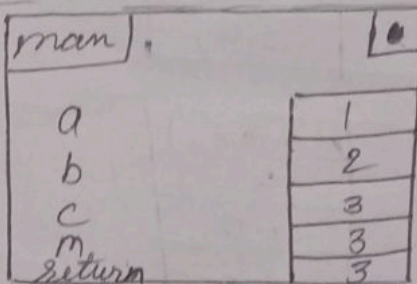 man
a 1
b 2
c 3
m 3
return 3